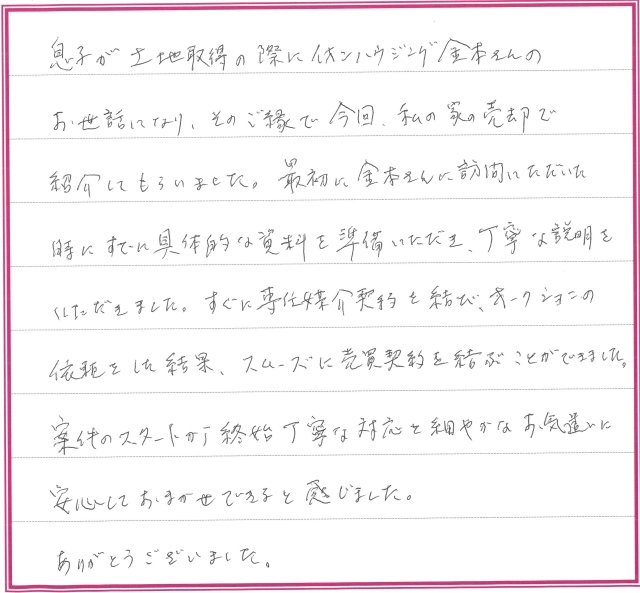 息子が土地取得の際にイオンハウジング金本さんの
お世話になり、そのご縁で今回、私の家の売却で
紹介してもらいました。最初に金本さんに訪問いただいた
時にすでに具体的な資料を準備いただき、丁寧な説明を
いただきました。すぐに専任媒介契約を結び、オークションの
依頼をした結果、スムーズに売買契約を結ぶことができました。
案件のスタートから終始丁寧な対応と細やかなお気遣いに
安心しておまかせできると感じました。
ありがとうございました。